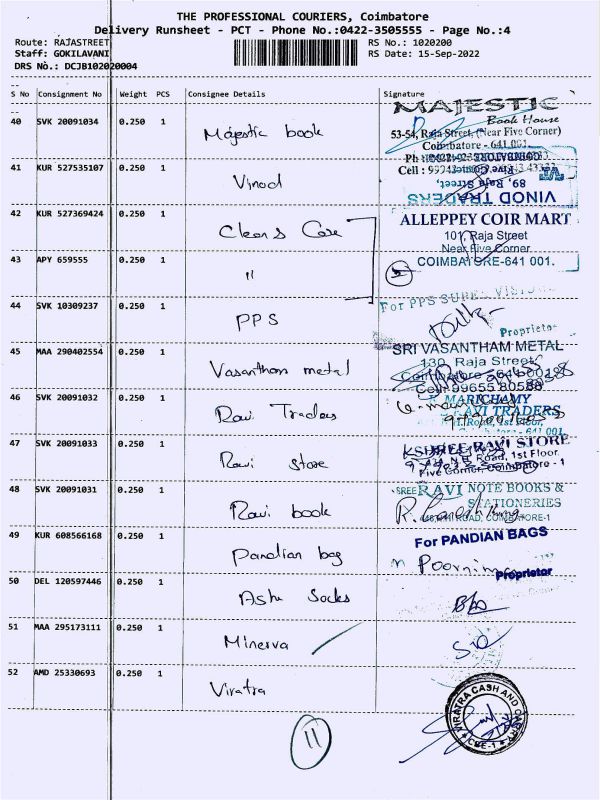 THE PROFESSIONAL COURIERS, Coimbatore
Delivery Runsheet - PCT - Phone No.:0422-3505555 - Page No.:4
Route: RAJASTREET RS No.: 1020200
Staff: GOKILAVANI RS Date: 15-Sep-2022
DRS No.: DCJB102020004
S No Consignment No Weight PCS Consignee Details Signature
40 SVK 20091034 0.250 1 Majestic book
MAJESTIC
Book House
53-54, Raja Street, (Near Five Corner)
Coimbatore - 641 001.
41 KUR 527535107 0.250 1 Vinod
VINOD TRADERS
89, Raja Street,
Five Corner,
42 KUR 527369424 0.250 1 Clean & Care
ALLEPPEY COIR MART
101, Raja Street
Near Five Corner
COIMBATORE-641 001.
43 APY 659555 0.250 1 "
2
44 SVK 10309237 0.250 1 PPS
For PPS
Proprietor
45 MAA 290402554 0.250 1 Vasantham metal
SRI VASANTHAM METAL
130, Raja Street
Cell: 99655 80588
46 SVK 20091032 0.250 1 Ravi Traders
MARICHAMY
RAVI TRADERS
1st Floor,
47 SVK 20091033 0.250 1 Ravi store
SHREE RAVI STORE
Road, 1st Floor.
Five Corner, Coimbatore - 1
48 SVK 20091031 0.250 1 Ravi book
SREE RAVI NOTE BOOKS &
STATIONERIES
ROAD, COIMBATORE-1
49 KUR 608566168 0.250 1 Pandian bag
For PANDIAN BAGS
Proprietor
50 DEL 120597446 0.250 1 Ashu Socks
51 MAA 295173111 0.250 1 Minerva
52 AMD 25330693 0.250 1 Viratra
VIRATRA CASH AND CARRY
CBE-1
11